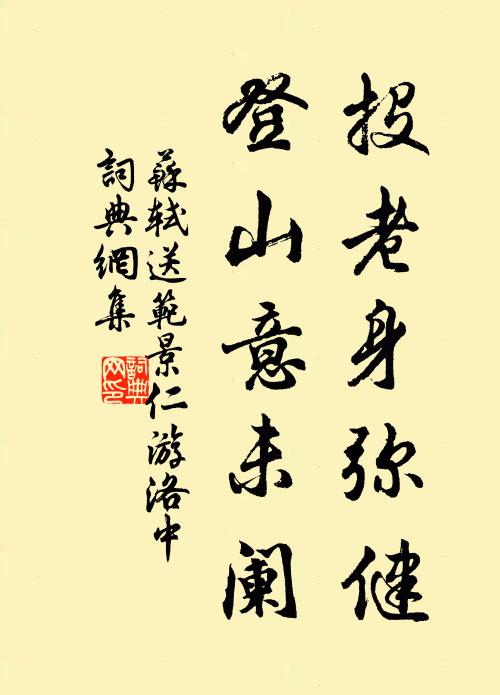 投老身弥健
登山意未阑
蘇軾送範景仁游洛中
詞典網集
詞典網印